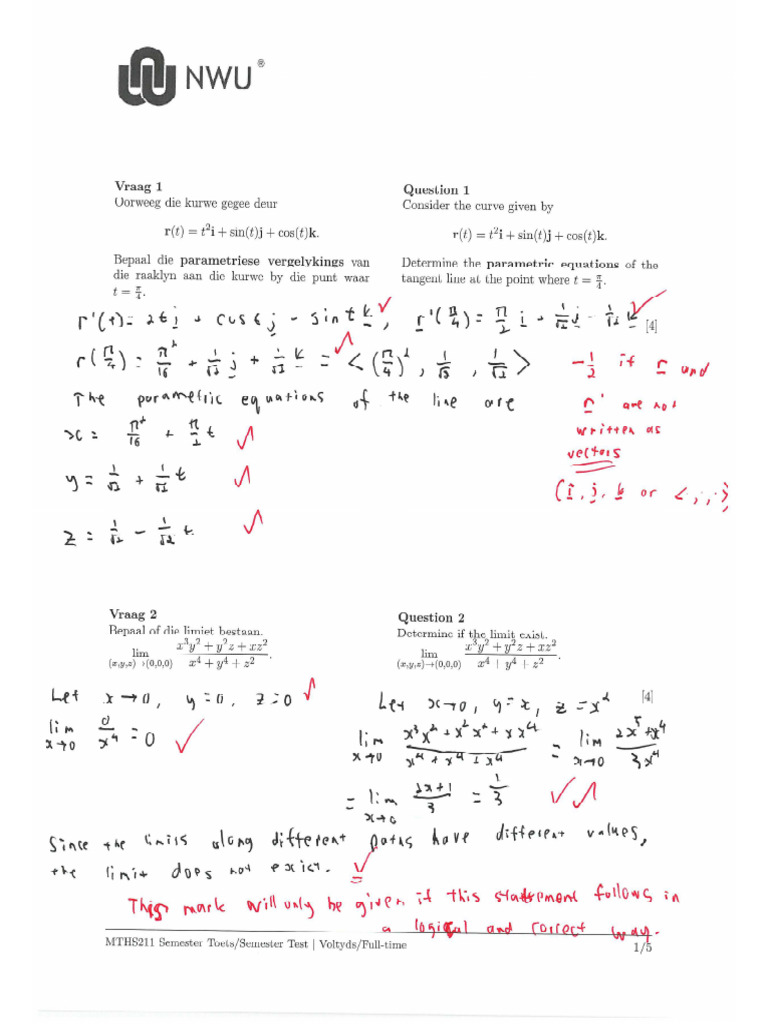 NWU®
Vraag 1
Oorweeg die kurwe gegee deur
r(t) = t²i + sin(t)j + cos(t)k.
Bepaal die parametriese vergelykings van
die raaklyn aan die kurwe by die punt waar
t = π/4.
Question 1
Consider the curve given by
r(t) = t²i + sin(t)j + cos(t)k.
Determine the parametric equations of the
tangent line at the point where t = π/4.
[4]
r'(t) = 2t i + cos t j - sin t k ✓, r'(π/4) = π/2 i + 1/√2 j - 1/√2 k ✓
r(π/4) = π²/16 i + 1/√2 j + 1/√2 k = <(π/4)², 1/√2, 1/√2> ✓
The parametric equations of the line are
x = π²/16 + π/2 t ✓
y = 1/√2 + 1/√2 t ✓
z = 1/√2 - 1/√2 t ✓
-1/2 if r and
r' are not
written as
vectors
(i, j, k or <,,>)
Vraag 2
Bepaal of die limiet bestaan.
lim (x,y,z)→(0,0,0) (x³y² + y²z + xz²)/(x⁴ + y⁴ + z²).
Question 2
Determine if the limit exist.
lim (x,y,z)→(0,0,0) (x³y² + y²z + xz²)/(x⁴ + y⁴ + z²).
[4]
Let x → 0, y = 0, z = 0 ✓
lim x→0 0/x⁴ = 0 ✓
Let x→0, y = x, z = x²
lim x→0 (x³x² + x²x² + x x⁴)/(x⁴ + x⁴ + x⁴) = lim x→0 (2x⁵ + x⁴)/3x⁴
= lim x→0 (2x+1)/3 = 1/3 ✓✓
Since the limits along different paths have different values,
the limit does not exist. ✓
This mark will only be given if this statement follows in
a logical and correct way.
MTHS211 Semester Toets/Semester Test | Voltyds/Full-time
1/5